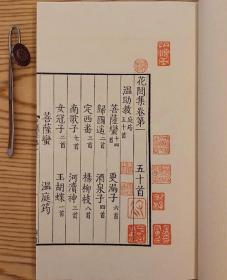 花間集卷第一 五十首
溫助教庭筠五十首
菩薩蠻十四首 更漏子六首
歸國遙二首 酒泉子四首
定西番三首 楊柳枝八首
南歌子七首 河瀆神三首
女冠子二首 玉胡蝶一首
菩薩蠻 溫庭筠